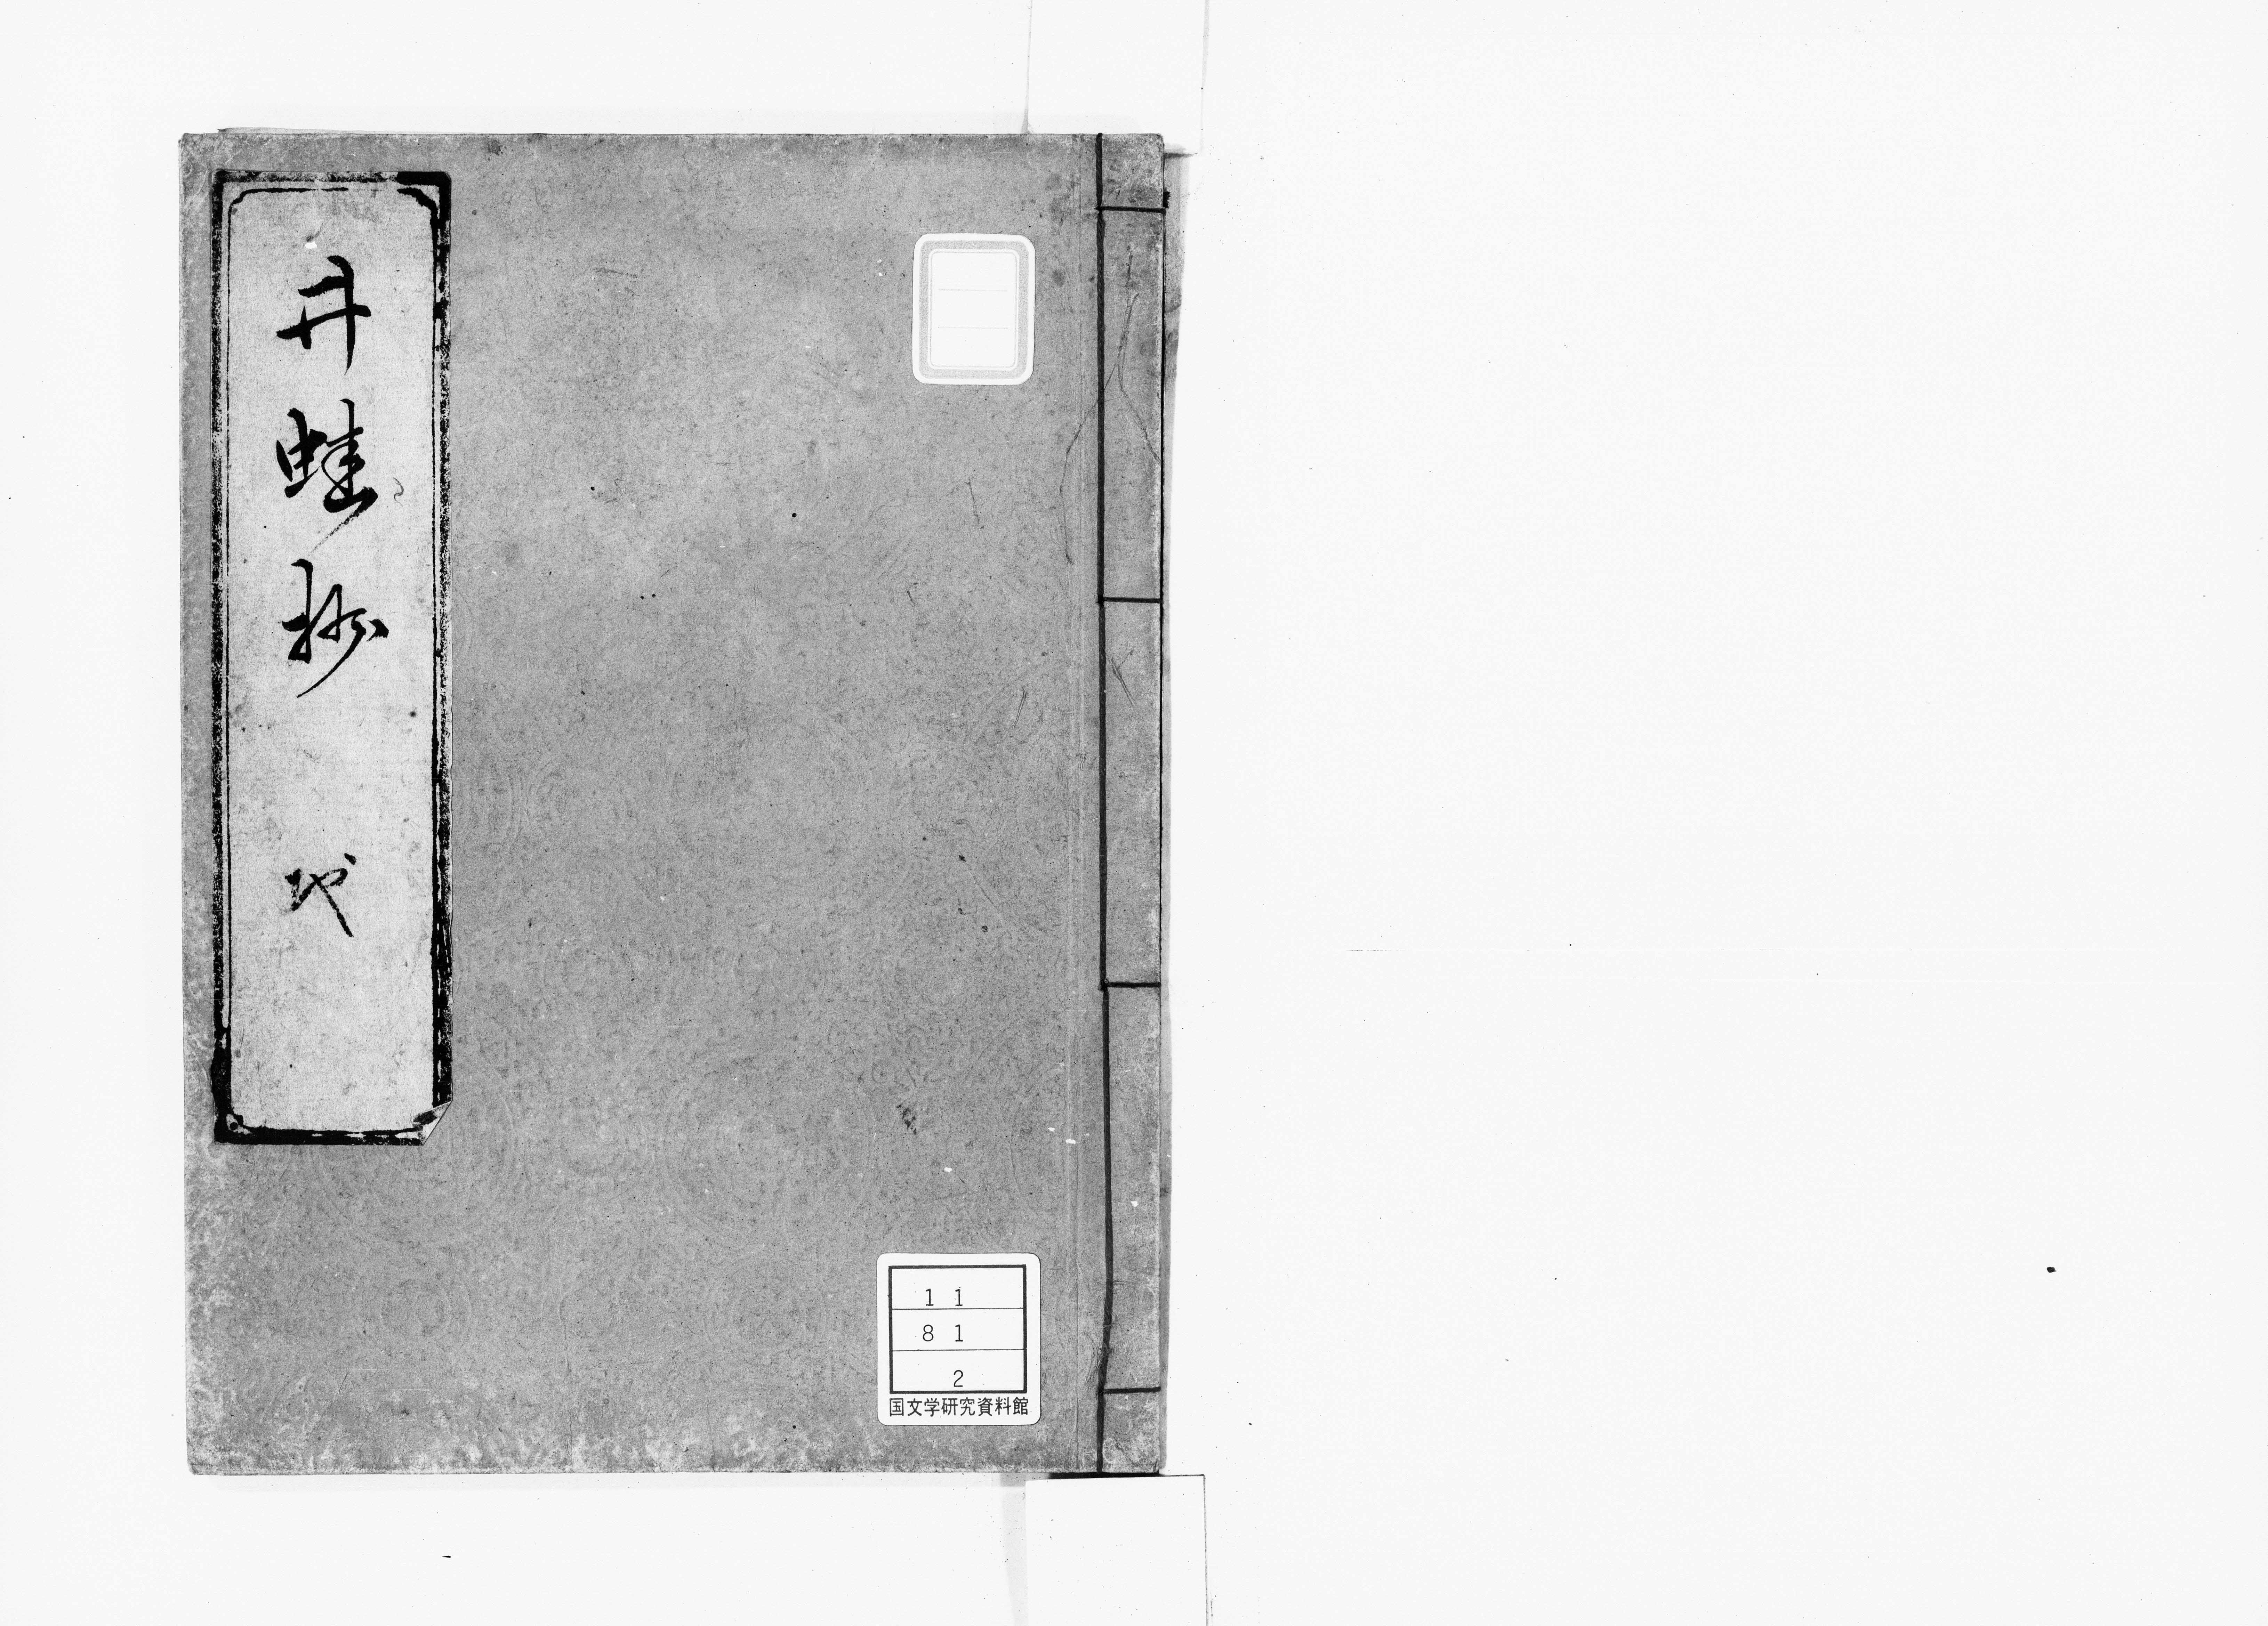 井蛙抄 地
11
81
2
国文学研究資料館